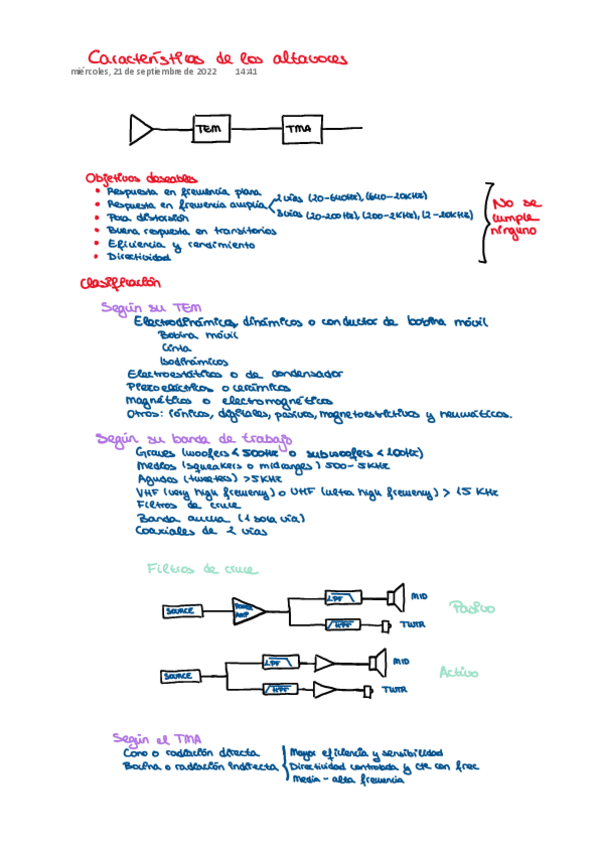 Características de los altavoces
miércoles, 21 de septiembre de 2022 14:41
TEM
TMA
Objetivos deseables
• Respuesta en frecuencia plana
• Respuesta en frecuencia amplia
2 vías (20-640Hz), (640-20KHz)
3 vías (20-200Hz), (200-2KHz), (2-20KHz)
• Poca distorsión
• Buena respuesta en transitorios
• Eficiencia y rendimiento
• Directividad
No se
cumple
ninguno
Clasificación
Según su TEM
Electrodinámicos, dinámicos o conductor de bobina móvil
Bobina móvil
Cinta
Isodinámicos
Electroestáticos o de condensador
Piezoeléctricos o cerámicos
Magnéticos o electromagnéticos
Otros: iónicos, digitales, pasivos, magnetoestrictivos y neumáticos.
Según su banda de trabajo
Graves (woofers < 500Hz o subwoofers < 100Hz)
Medios (squeakers o midranges) 500-5KHz
Agudos (tweeters) >5KHz
VHF (very high frequency) o UHF (ultra high frequency) > 15 KHz
Filtros de cruce
Banda ancha (1 sola vía)
Coaxiales de 2 vías
Filtros de cruce
SOURCE
POWER AMP
LPF
MID
HPF
TWTR
Pasivo
SOURCE
LPF
MID
HPF
TWTR
Activo
Según el TMA
Cono o radiación directa
Bocina o radiación indirecta
Mayor eficiencia y sensibilidad
Directividad controlada y cte con frec
Media-alta frecuencia